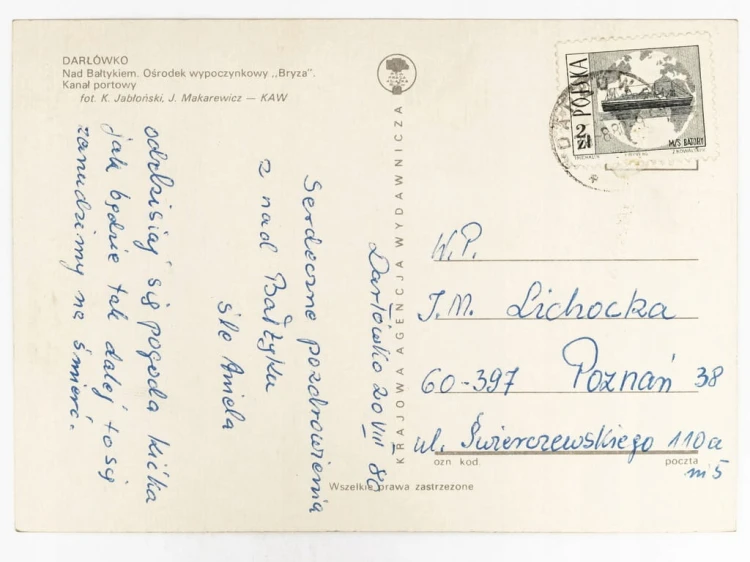 DARŁÓWKO
Nad Bałtykiem. Ośrodek wypoczynkowy „Bryza”.
Kanał portowy
fot. K. Jabłoński, J. Makarewicz — KAW
KRAJOWA AGENCJA WYDAWNICZA
POLSKA
2 ZŁ
M/S BATORY
Darłówko 20 VIII 80
Serdeczne pozdrowienia
z nad Bałtyku
śle Aniela
od dzisiaj się pogoda
jak będzie tak dalej to się
zanudzimy na śmierć.
W.P.
J.M. Lichocka
60-397 Poznań 38
ul. Świerczewskiego 110a
m 5
ozn kod.
poczta
Wszelkie prawa zastrzeżone